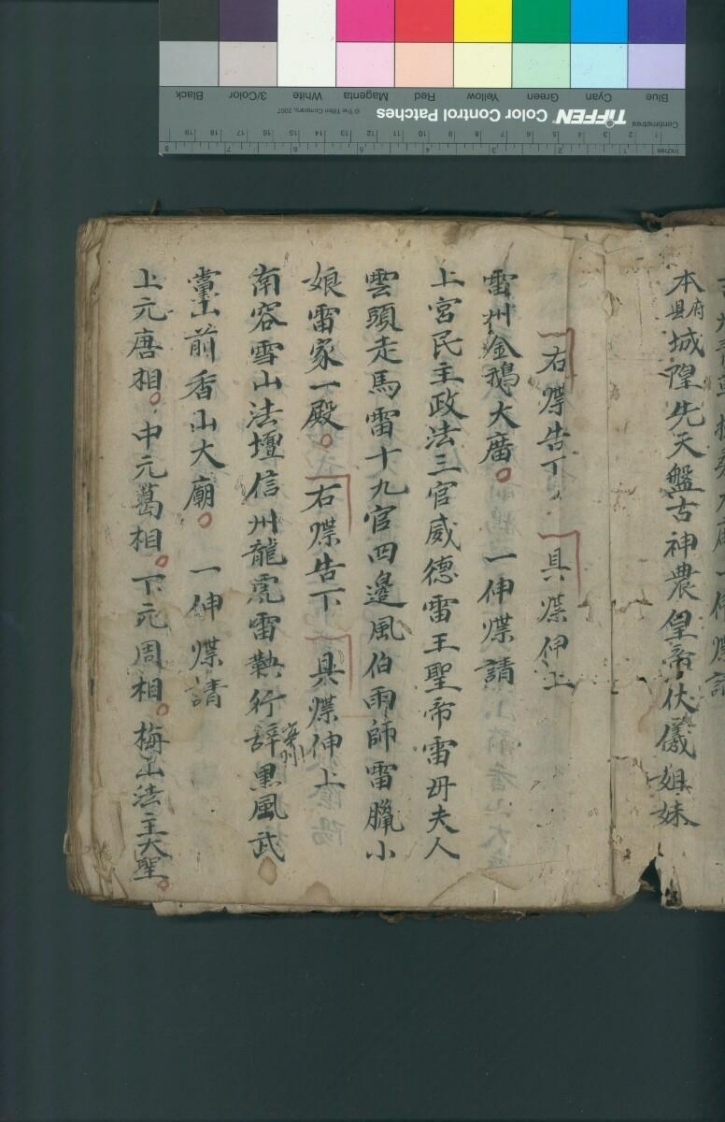 本府縣城隍先天盤古神農皇帝伏儀姐妹
右牒告下 具牒伸上
雷州金鵝大廟 一伸牒請
上宮民主政法三官威德雷王聖帝雷毌夫人
雲頭走馬雷十九官四邊風伯雨師雷臘小
娘雷家一殿 右牒告下 具牒伸上
南容雪山法壇信州龍虎雷 行辞黑風武
當山前香山大廟 一伸牒請
上元唐相 中元葛相 下元周相 梅山法主大聖
Blue Cyan Green Yellow Red Magenta White 3/Color Black
TIFFEN Color Control Patches
© The Tiffen Company, 2007
Centimetres
Inches